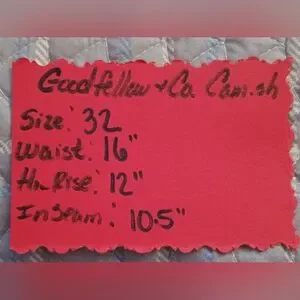 Goodfellow + Co. Cam.sh
Size: 32
Waist: 16"
Hi-Rise: 12"
InSeam: 10.5"